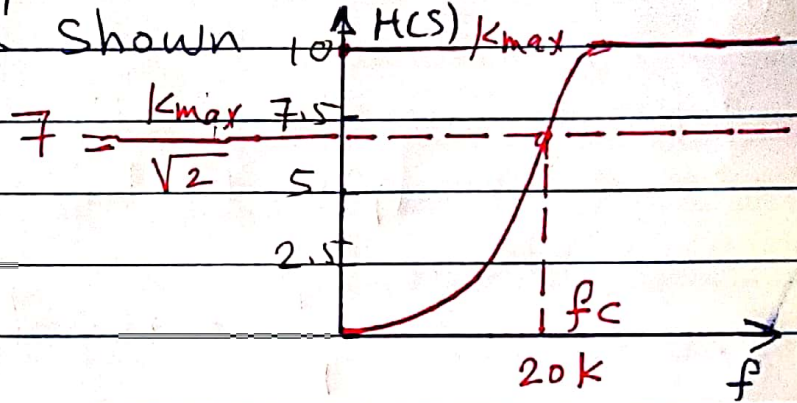 shown 10 H(S) Kmax
7 = Kmax/√2 7.5
5
2.5
fc
20K f